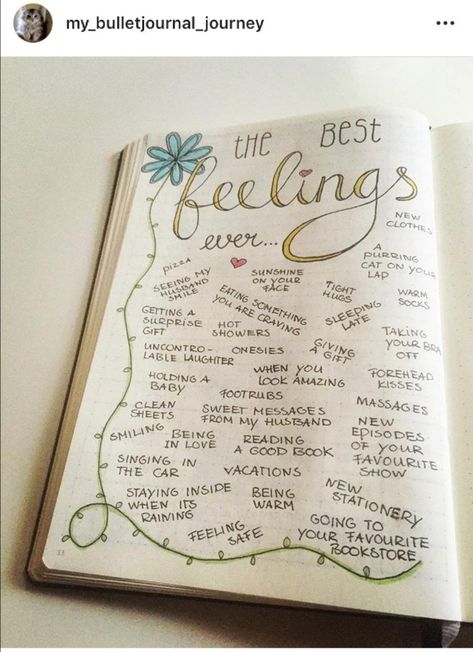 my_bulletjournal_journey
THE BEST
feelings
ever...
NEW
CLOTHES
PIZZA
SEEING MY
HUSBAND
SMILE
SUNSHINE
ON YOUR
FACE
A
PURRING
CAT ON YOUR
LAP
EATING SOMETHING
YOU ARE CRAVING
TIGHT
HUGS
WARM
SOCKS
GETTING A
SURPRISE
GIFT
HOT
SHOWERS
SLEEPING
LATE
TAKING
YOUR BRA
OFF
UNCONTRO-
LABLE LAUGHTER
ONESIES
GIVING
A GIFT
HOLDING A
BABY
WHEN YOU
LOOK AMAZING
FOREHEAD
KISSES
FOOTRUBS
MASSAGES
CLEAN
SHEETS
SWEET MESSAGES
FROM MY HUSBAND
NEW
EPISODES
OF YOUR
FAVOURITE
SHOW
SMILING
BEING
IN LOVE
READING
A GOOD BOOK
SINGING IN
THE CAR
VACATIONS
STAYING INSIDE
WHEN ITS
RAINING
BEING
WARM
NEW
STATIONERY
FEELING
SAFE
GOING TO
YOUR FAVOURITE
BOOKSTORE
33